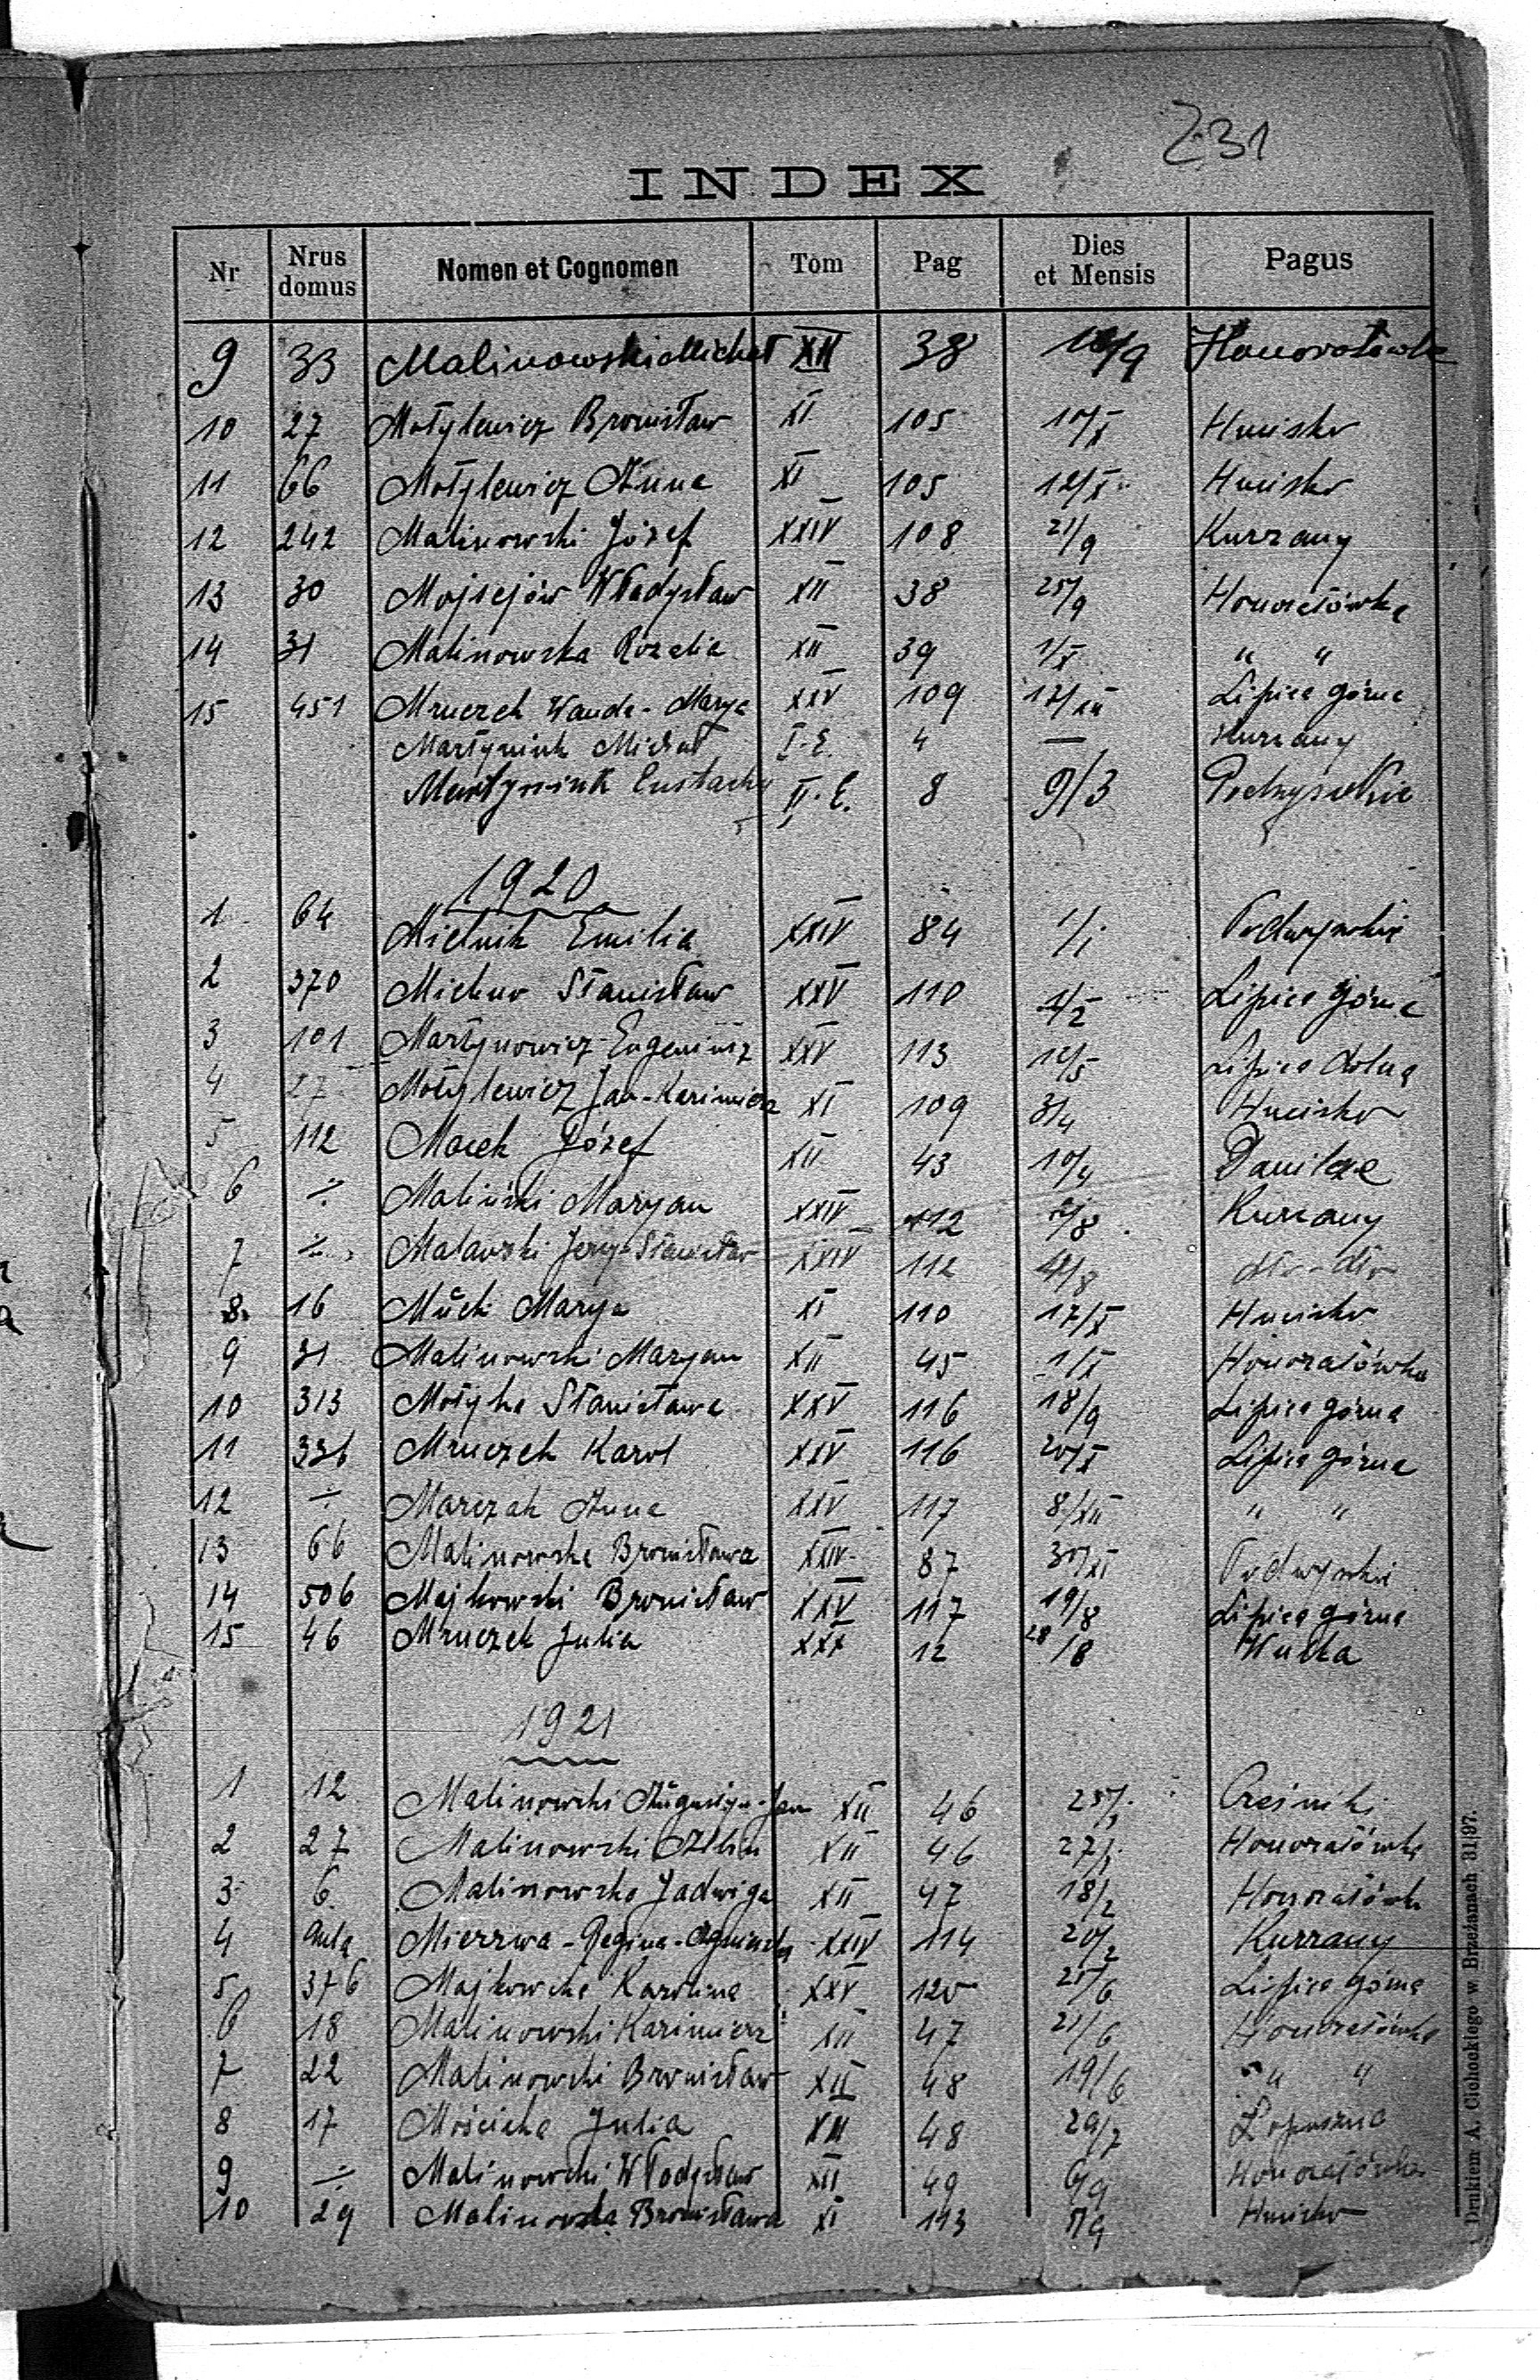 231
INDEX
Nr Nrus domus Nomen et Cognomen Tom Pag Dies et Mensis Pagus
9 33 Malinowski Michał XII 38 18/9 Honoratówka
10 27 Motylewicz Bronisław XI 105 10/X Hucisko
11 66 Motylewicz Anna XI 105 12/X Hucisko
12 242 Malinowski Józef XXIV 108 21/9 Kurzany
13 30 Mojsejów Władysław XII 38 25/9 Honoratówka
14 31 Malinowska Rozalia XII 39 1/X " "
15 451 Mruczek Wanda-Marya XXV 109 17/XII Lipica górna
Martyniuk Michał I-E. 4 — Kurzany
Martyniuk Eustachy II-E. 8 9/3 Podwysokie
1920
1 64 Mielnik Emilia XXIV 84 1/1 Podwysokie
2 370 Michno Stanisław XXV 110 Lipica górna
3 101 Martynowicz Eugeniusz XXV 113 12/5 Lipica dolna
4 27 Motylewicz Jan-Kazimierz XI 109 3/4 Hucisko
5 112 Macek Józef XII 43 10/4 Danilcze
6 ·/· Maliński Maryan XXIV 112 Kurzany
7 ·/· Malawski Jerzy-Stanisław XXIV 112 4/8 dto-dto
8 16 Marya XI 110 17/X Hucisko
9 31 Malinowski Maryan XII 45 1/X Honoratówka
10 313 Motyka Stanisława XXV 116 18/9 Lipica górna
11 336 Mruczek Karol XXV 116 20/X Lipica górna
12 ·/· Marczak Anna XXV 117 8/XII " "
13 66 Malinowska Bronisława XXIV 87 30/XI Podwysokie
14 506 Majkowski Bronisław XXV 117 19/8 Lipica górna
15 46 Mruczek Julia XXX 12 28/8 Wulka
1921
1 12 Malinowski Augustyn-Jan XII 46 25/1 Cześniki
2 27 Malinowski Albin XII 46 27/1 Honoratówka
3 6 Malinowska Jadwiga XII 47 18/2 Honoratówka
4 Aula Mierzwa-Regina-Agnieszka XXIV 114 20/2 Kurzany
5 376 Majkowska Karolina XXV 120 25/6 Lipica górna
6 18 Malinowski Kazimierz XII 47 21/6 Honoratówka
7 22 Malinowski Bronisław XII 48 19/6 " "
8 17 Mościcka Julia XII 48 29/7 Łopuszna
9 ·/· Malinowski Włodysław XII 49 6/9 Honoratówka
10 29 Malinowska Bronisława XI 113 5/9 Hucisko
Drukiem A. Cichockiego w Brzeżanach 31|97.